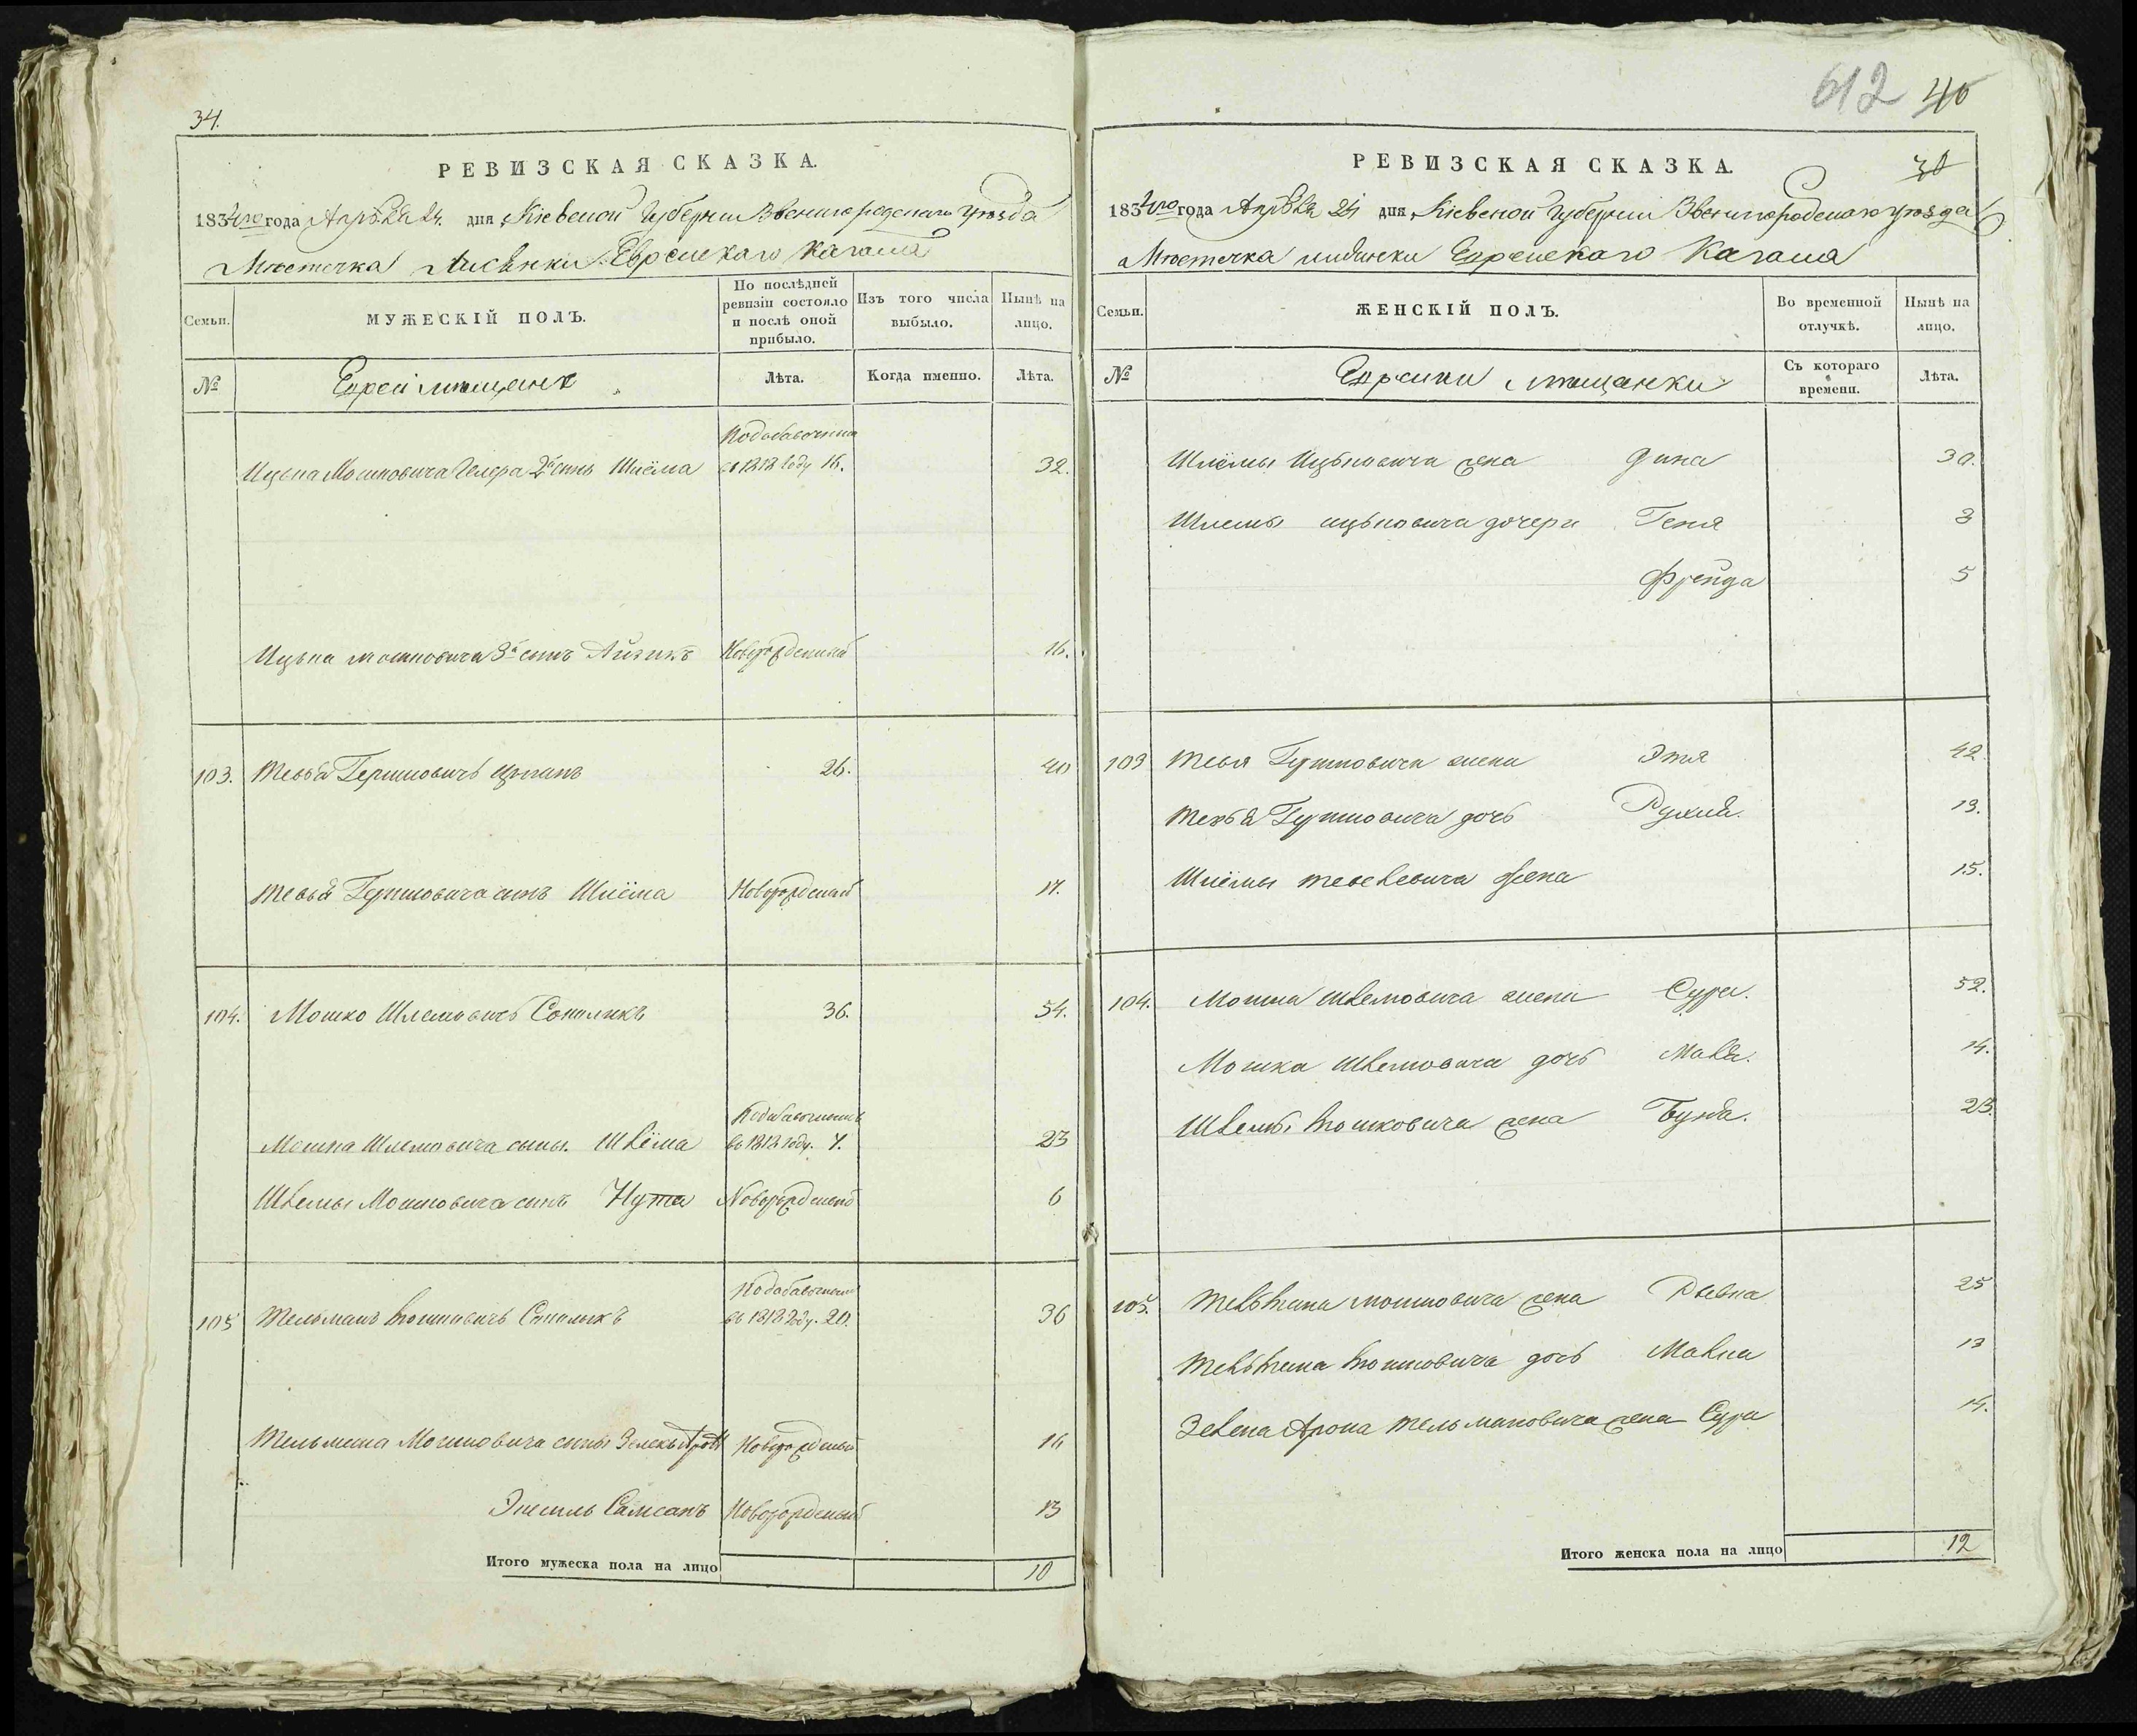 34.
РЕВИЗСКАЯ СКАЗКА.
1834го года Апрѣля 24 дня Кіевской Губерніи Звенигородскаго уѣзда
Мѣстечка Лисянки Еврейскаго Кагала
Семьи.
МУЖЕСКІЙ ПОЛЪ.
По послѣдней ревизіи состояло и послѣ оной прибыло.
Изъ того числа выбыло.
Нынѣ на лицо.
№
Евреи мѣщане
Лѣта.
Когда именно.
Лѣта.
Подобавочнымъ
Ицька Мошковича 2й сынъ Шлёма въ 1818 году 16. 32.
Ицька Мошковича 3й сынъ Айзикъ Новорожденный 16.
103. Тевья Гершковичъ Цыганъ 26. 40
Тевья Гершковича сынъ Шлёма Новорожденный 17.
104. Мошко Шлемовичъ 36. 54.
Подобавочнымъ
Мошка Шлемовича сыны. Шлёма въ 1818 году. 7. 23
Шлемы Мошковича сынъ Нута Новорожденный 6
Подобавочнымъ
105 Тельманъ Мошковичъ въ 1818 году. 20. 36
Тельмана Мошковича сыны Зелекъ Аронъ Новорожденный 16
Самсонъ Новорожденный 13
Итого мужеска пола на лицо 10
612 40
РЕВИЗСКАЯ СКАЗКА.
1834го года Апрѣля 24 дня Кіевской Губерніи Звенигородскаго уѣзда
Мѣстечка Лисянки Еврейскаго Кагала
Семьи.
ЖЕНСКІЙ ПОЛЪ.
Во временной отлучкѣ.
Нынѣ на лицо.
№
Еврейки мѣщанки
Съ котораго времени.
Лѣта.
Шлёмы Ицьковича жена Дина 30.
Шлемы Ицьковича дочери Геня 8
Фрейда 5
103 Тевья Гершковича жена Этя 42.
Тевья Гершковича дочь Рухля. 13.
Шлёмы Тевелевича жена 15.
104. Мошка Шлемовича жена Сура. 52.
Мошка Шлемовича дочь Маля. 14.
Шлемы Мошковича жена Бужа. 23.
105. Тельмана Мошковича жена Ривка 25
Тельмана Мошковича дочь Малка 13
Зелека Арона Тельмановича жена Сура 14.
Итого женска пола на лицо 12